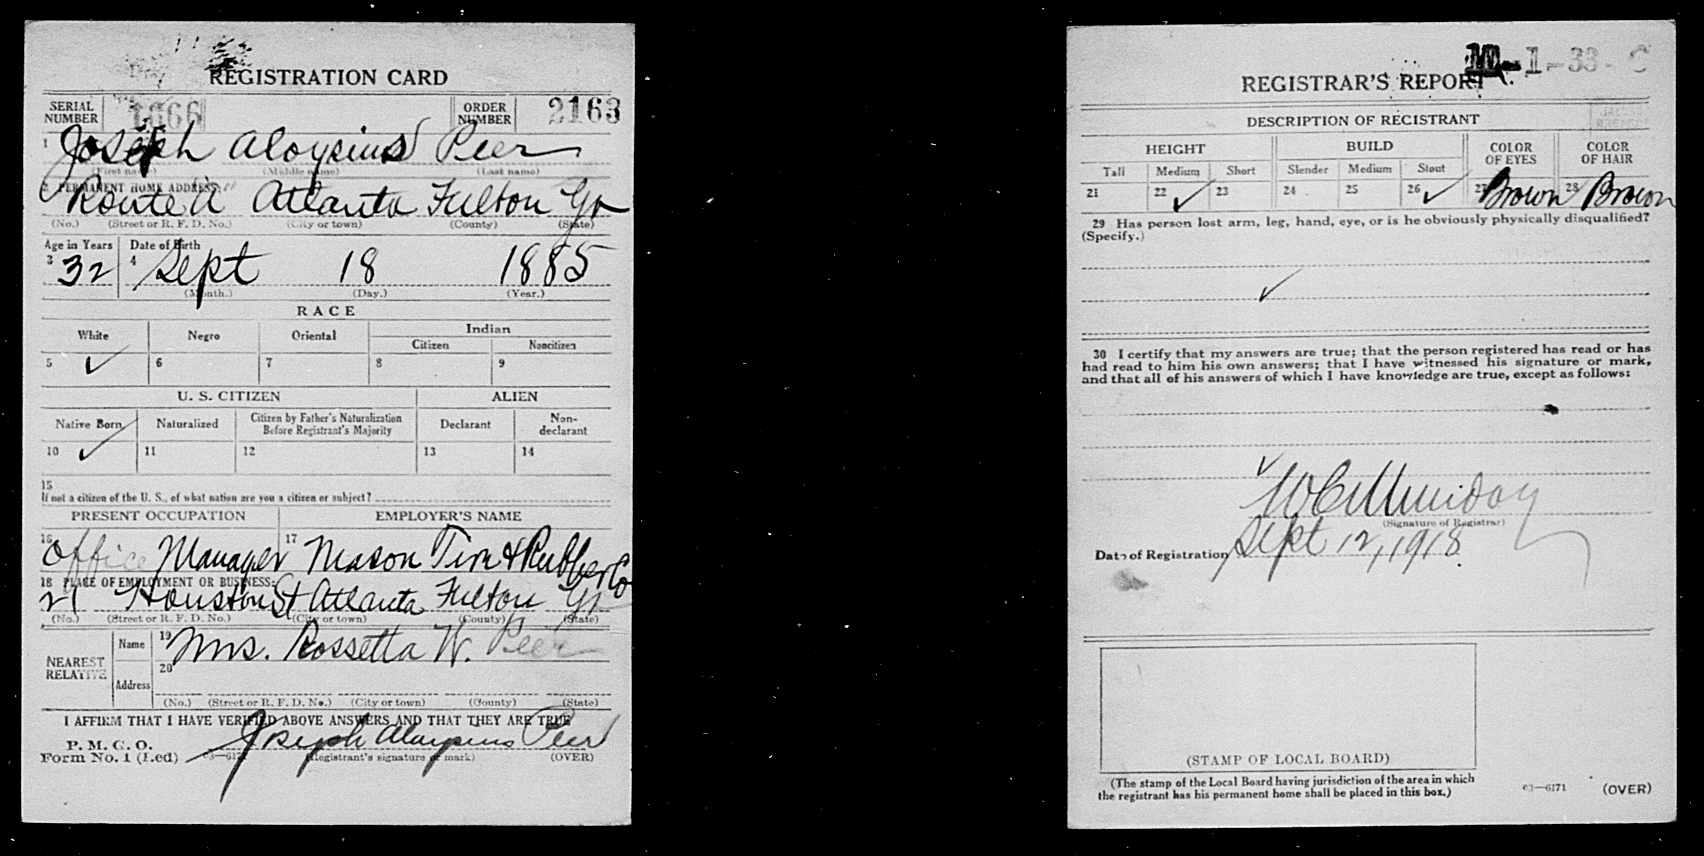 REGISTRATION CARD
SERIAL NUMBER 1366 ORDER NUMBER 2163
1 Joseph Aloysius Peer
(First name) (Middle name) (Last name)
2 PERMANENT HOME ADDRESS:
Route A Atlanta Fulton Ga
(No.) (Street or R. F. D. No.) (City or town) (County) (State)
Age in Years Date of Birth
3 32 4 Sept 18 1885
(Month.) (Day.) (Year.)
RACE
White Negro Oriental Indian
Citizen Noncitizen
5 ✓ 6 7 8 9
U. S. CITIZEN ALIEN
Native Born Naturalized Citizen by Father's Naturalization Before Registrant's Majority Declarant Non-declarant
10 ✓ 11 12 13 14
15
If not a citizen of the U. S., of what nation are you a citizen or subject?
PRESENT OCCUPATION EMPLOYER'S NAME
16 Office Manager 17 Mason Tire & Rubber Co
18 PLACE OF EMPLOYMENT OR BUSINESS:
21 Houston St Atlanta Fulton Ga
(No.) (Street or R. F. D. No.) (City or town) (County) (State)
NEAREST RELATIVE Name 19 Mrs. Rossetta W. Peer
Address 20
(No.) (Street or R. F. D. No.) (City or town) (County) (State)
I AFFIRM THAT I HAVE VERIFIED ABOVE ANSWERS AND THAT THEY ARE TRUE
P. M. G. O.
Form No. 1 (Red) 03—6171 Joseph Aloysius Peer
(Registrant's signature or mark) (OVER)
-1-33-C
REGISTRAR'S REPORT
DESCRIPTION OF REGISTRANT
HEIGHT BUILD COLOR OF EYES COLOR OF HAIR
Tall Medium Short Slender Medium Stout
21 22 ✓ 23 24 25 26 ✓ 27 Brown 28 Brown
29 Has person lost arm, leg, hand, eye, or is he obviously physically disqualified?
(Specify.)
✓
30 I certify that my answers are true; that the person registered has read or has
had read to him his own answers; that I have witnessed his signature or mark,
and that all of his answers of which I have knowledge are true, except as follows:
✓
W C Munday
(Signature of Registrar)
Date of Registration Sept 12, 1918
(STAMP OF LOCAL BOARD)
(The stamp of the Local Board having jurisdiction of the area in which
the registrant has his permanent home shall be placed in this box.)
03—6171 (OVER)